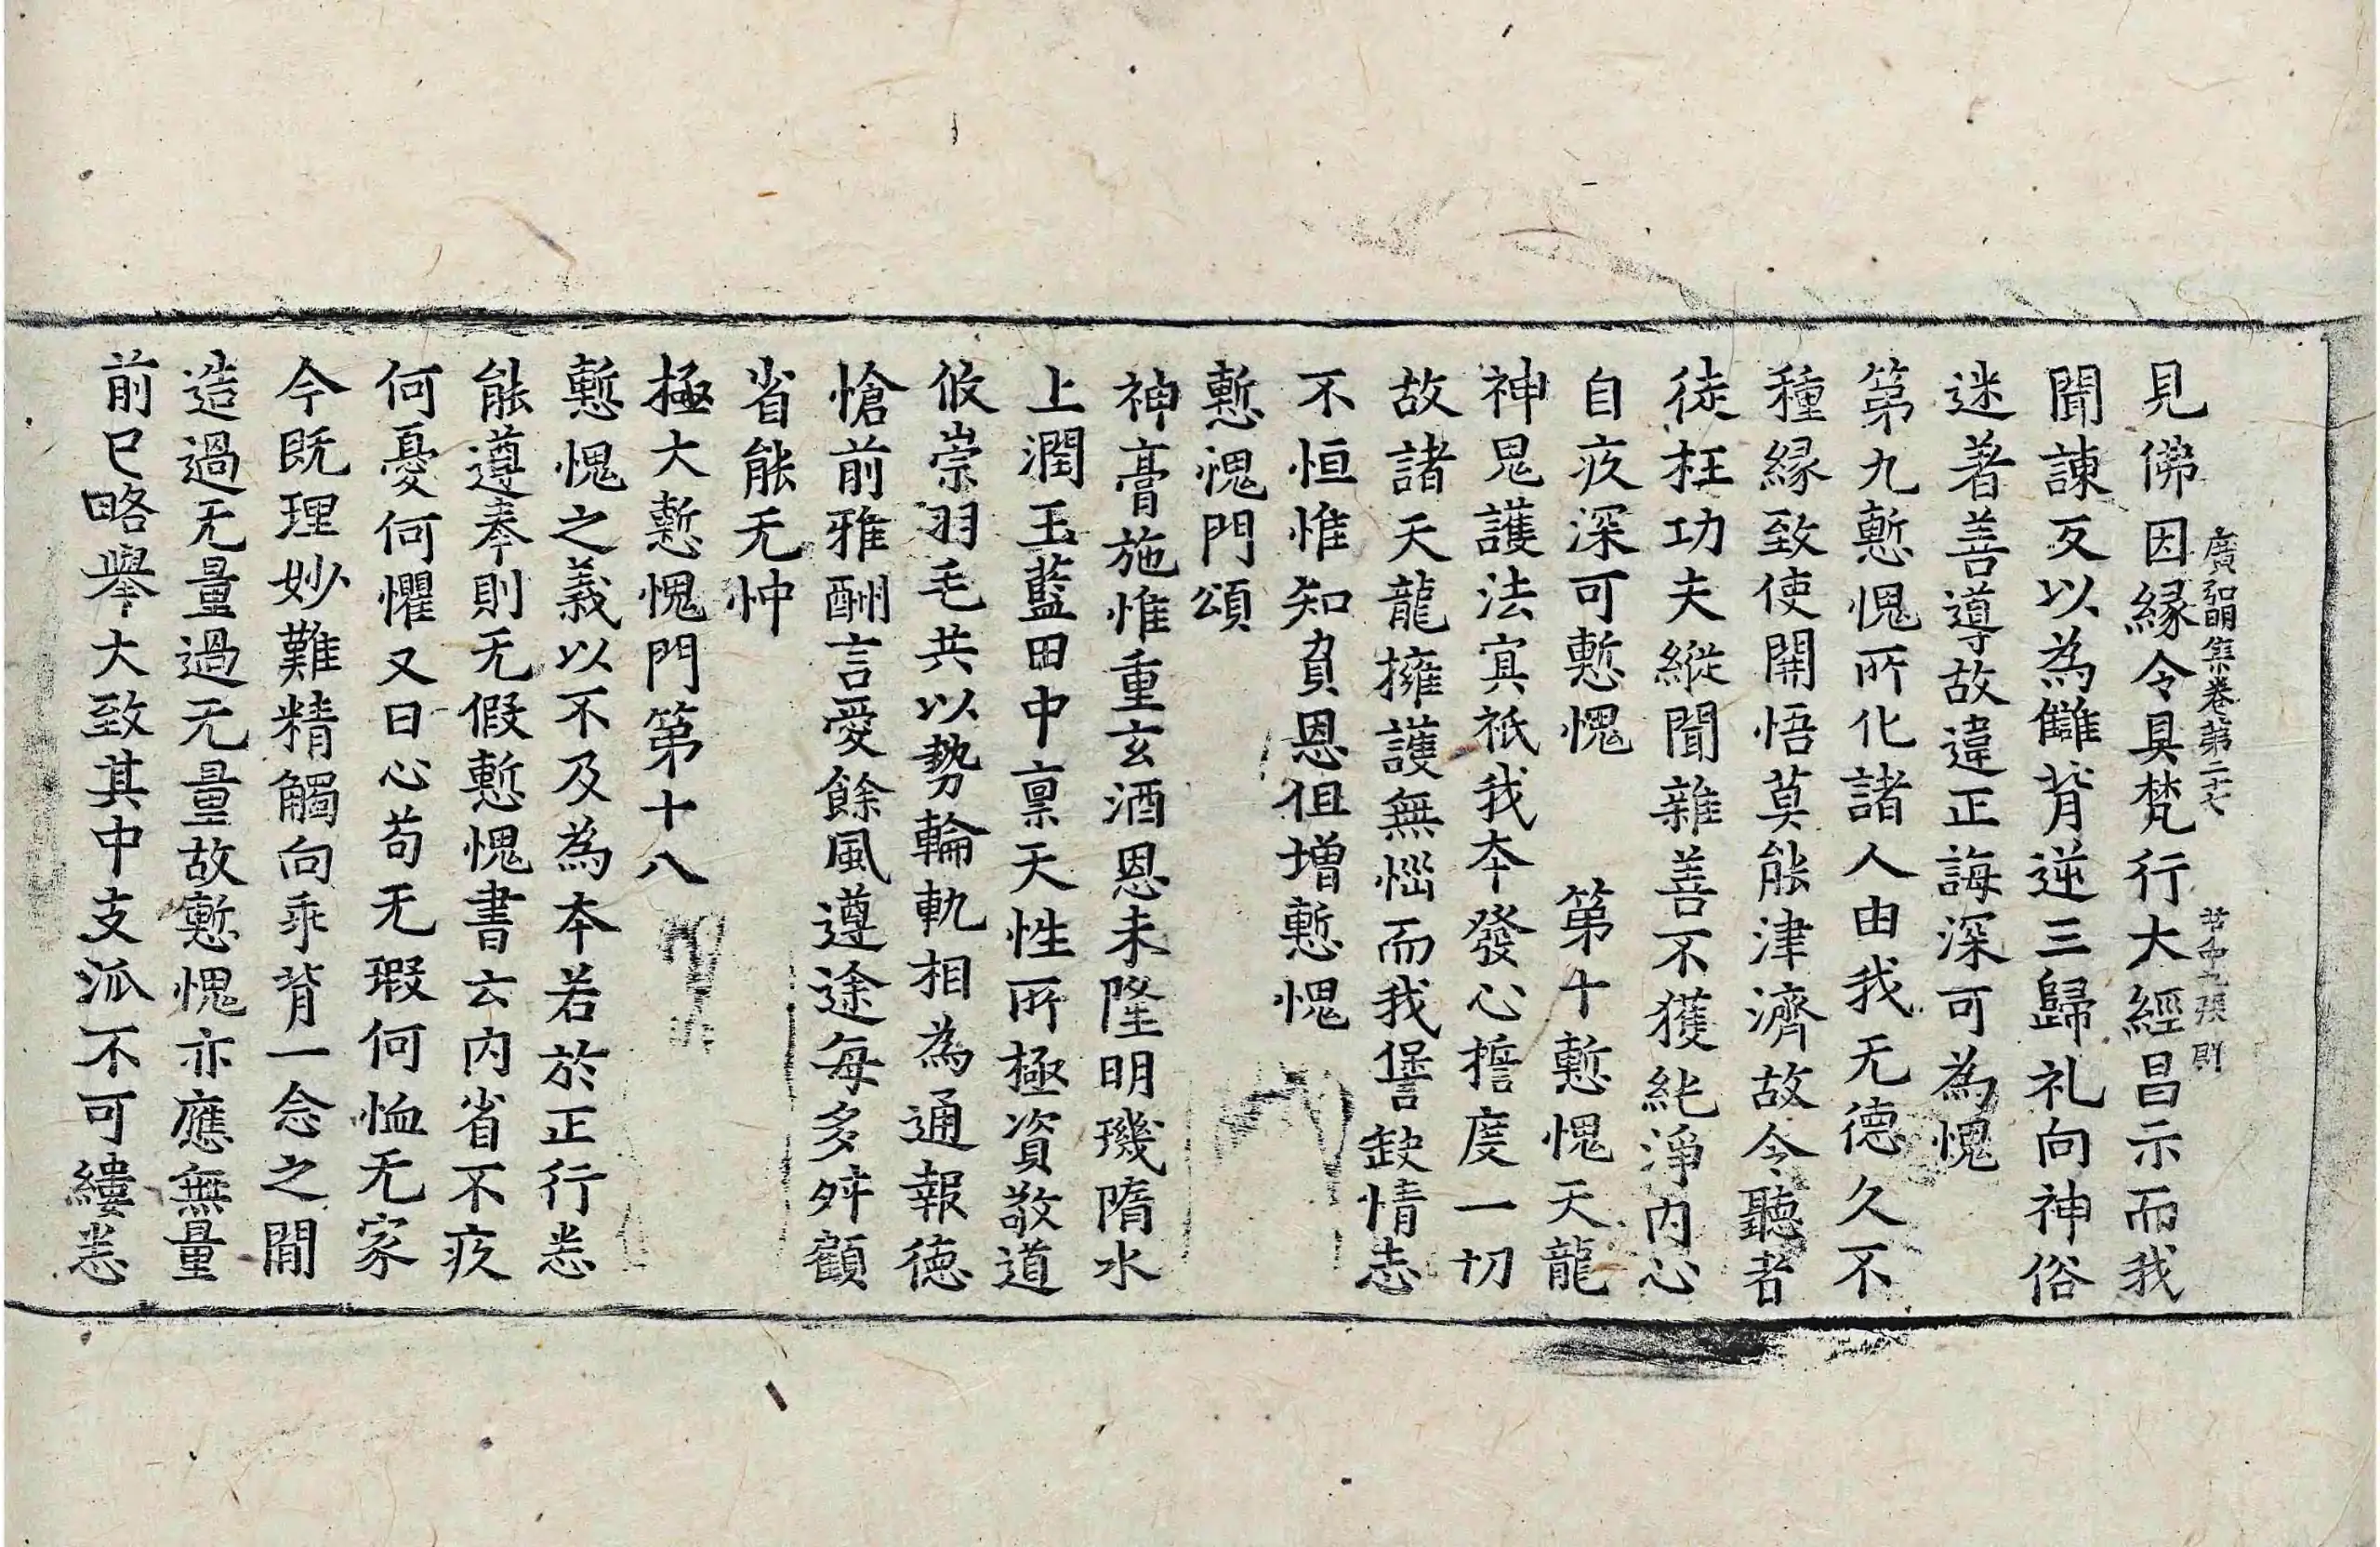 見佛因緣令具梵行大經昌示而我
廣弘明集卷第二十七 張 則
聞諫反以為讎背逆三歸礼向神俗
迷著善導故違正誨深可為愧
第九慙愧所化諸人由我无德久不
種緣致使開悟莫能津濟故令聽者
徒枉功夫縱聞雜善不獲純淨內心
自疚深可慙愧 第十慙愧天龍
神鬼護法冥祇我本發心擔度一切
故諸天龍擁護無惱而我𠎝缺情志
不恒惟知負恩但增慙愧
慙愧門頌
神膏施惟重玄酒恩未隆明璣隋水
上潤玉藍田中禀天性所極資敬道
攸崇羽毛共以勢輪軌相為通報德
愴前雅酬言愛餘風遵途每多舛顧
省能无忡
極大慙愧門第十八
慙愧之義以不及為本若於正行悉
能遵奉則无假慙愧書云內省不疚
何憂何懼又曰心苟无瑕何恤无家
今既理妙難精觸向乖背一念之間
造過无量過无量故慙愧亦應無量
前已略舉大致其中支派不可縷悉